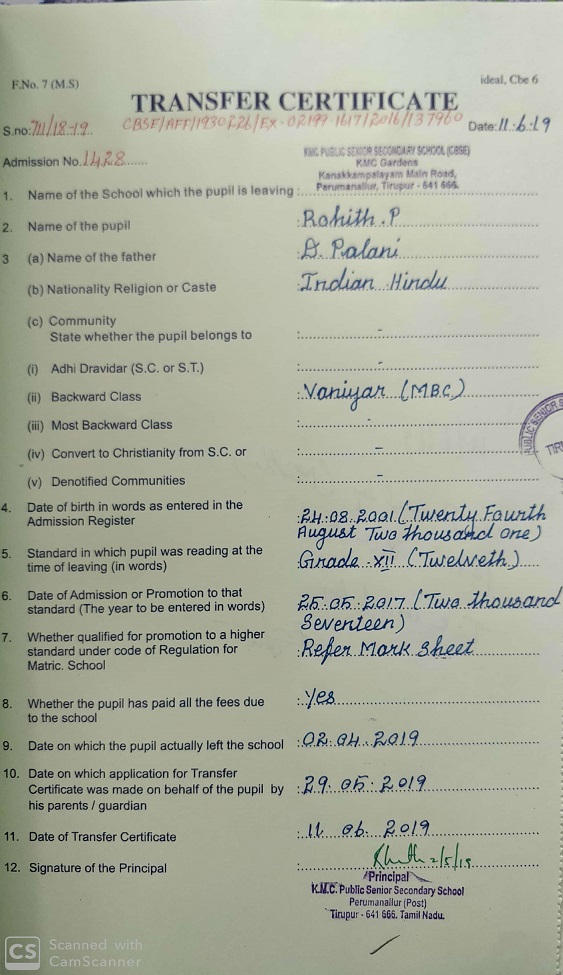 F.No. 7 (M.S)
ideal, Cbe 6
TRANSFER CERTIFICATE
S.no: 711/18-19
CBSE/AFF/1930226/EX-02199-1617/2016/137960
Date: 11.6.19
Admission No. 1428
KMC PUBLIC SENIOR SECONDARY SCHOOL (CBSE)
KMC Gardens
Kanakkampalayam Main Road,
Perumanallur, Tirupur - 641 666.
1. Name of the School which the pupil is leaving :
2. Name of the pupil : Rohith.P
3 (a) Name of the father : D. Palani
(b) Nationality Religion or Caste : Indian Hindu
(c) Community
State whether the pupil belongs to : -
(i) Adhi Dravidar (S.C. or S.T.) : -
(ii) Backward Class : Vaniyar (MBC)
(iii) Most Backward Class : -
(iv) Convert to Christianity from S.C. or : -
(v) Denotified Communities : -
PUBLIC SENIOR S
TIR
4. Date of birth in words as entered in the : 24.08.2001 (Twenty Fourth
Admission Register August Two thousand one)
5. Standard in which pupil was reading at the : Grade - XII (Twelveth)
time of leaving (in words)
6. Date of Admission or Promotion to that : 25.05.2017 (Two thousand
standard (The year to be entered in words) Seventeen)
7. Whether qualified for promotion to a higher : Refer Mark Sheet
standard under code of Regulation for
Matric. School
8. Whether the pupil has paid all the fees due : yes
to the school
9. Date on which the pupil actually left the school : 02.04.2019
10. Date on which application for Transfer : 29.05.2019
Certificate was made on behalf of the pupil by
his parents / guardian
11. Date of Transfer Certificate : 11.06.2019
12. Signature of the Principal : 2/5/19
Principal
K.M.C. Public Senior Secondary School
Perumanallur (Post)
Tirupur - 641 666. Tamil Nadu.
CS Scanned with
CamScanner